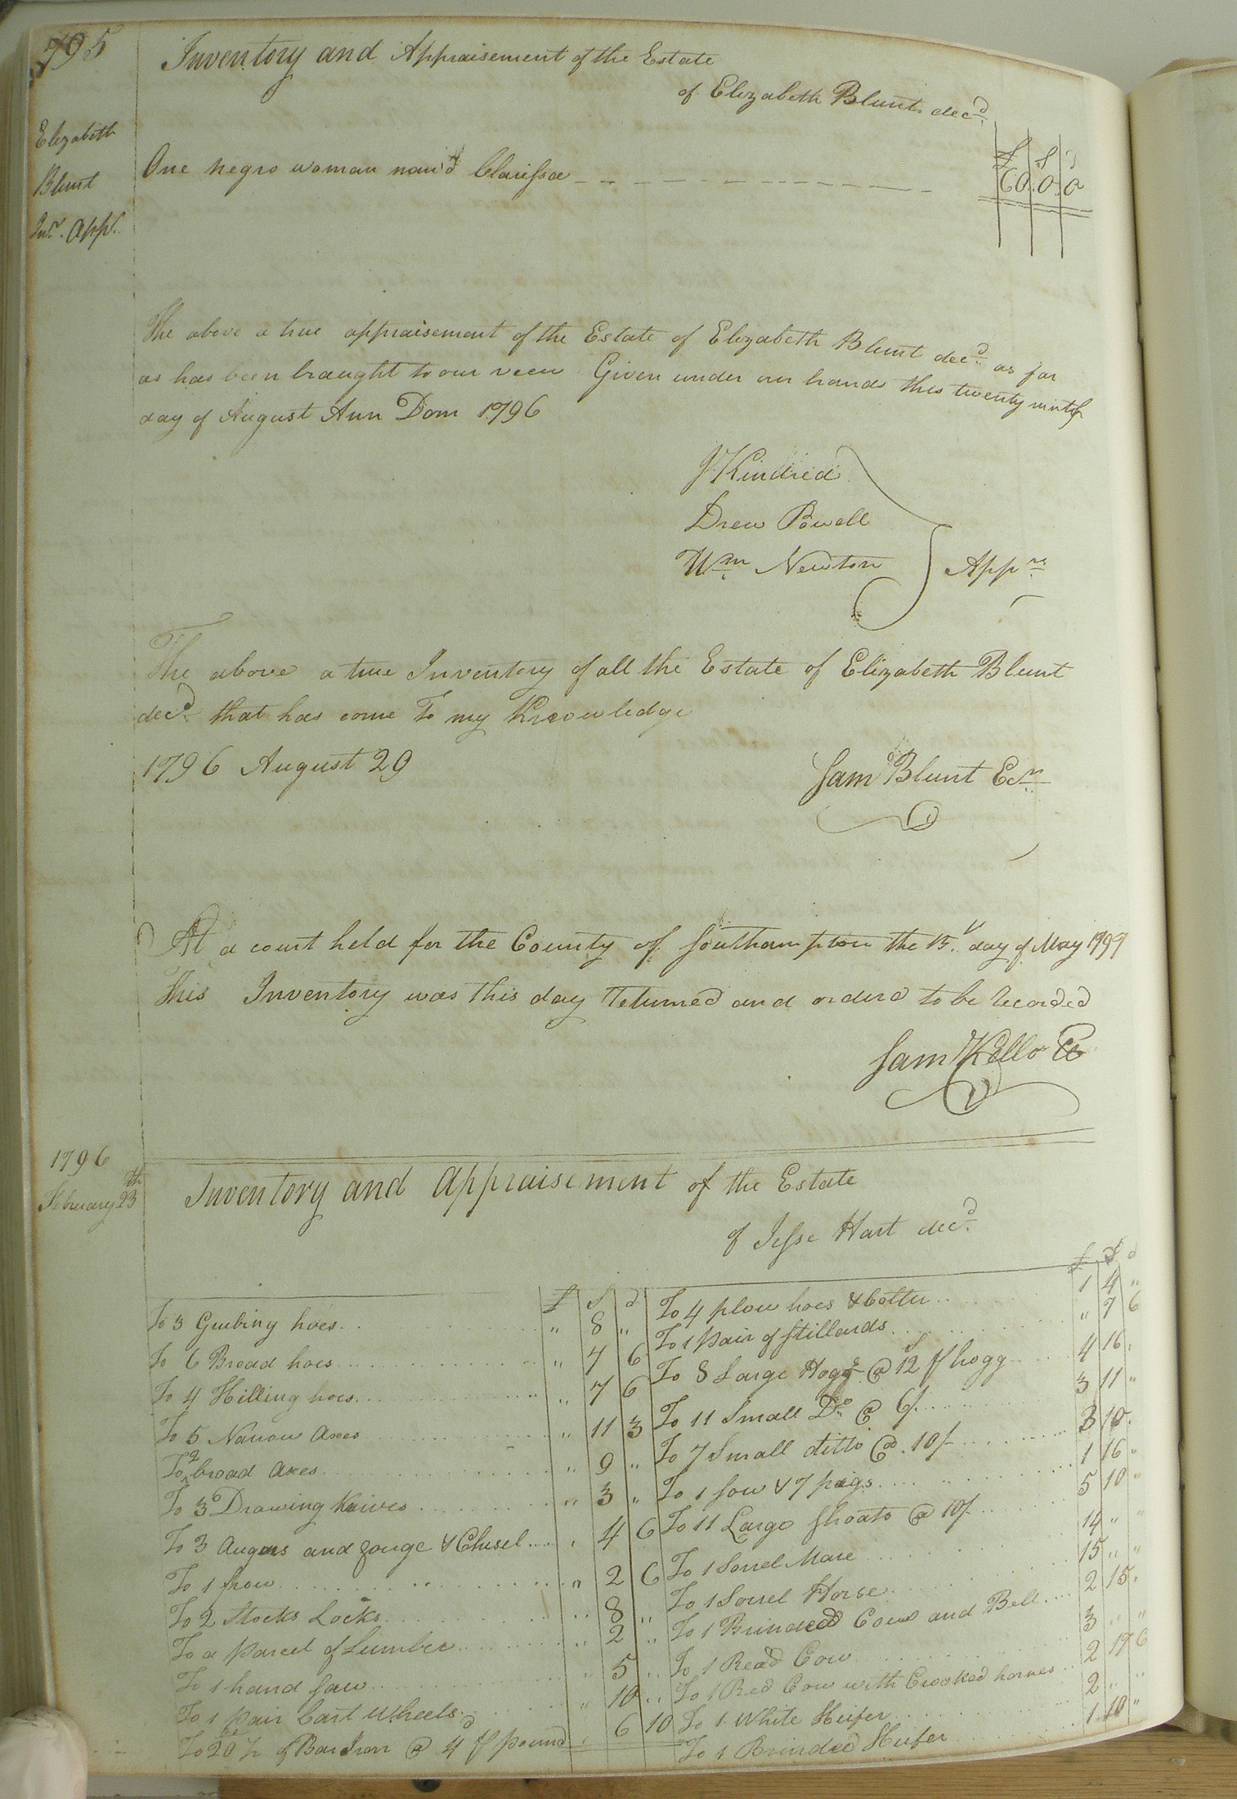 795
Inventory and Appraisement of the Estate
of Elizabeth Blunt decd
Elizabeth
Blunt
Inv. App.
£ S d
One negro woman nam'd Clarissa 60. 0. 0
The above a true appraisement of the Estate of Elizabeth Blunt decd as far
as has been braught to our veiw Given under our hands this twenty ninth
day of August Ann Dom 1796
J Kindred
Drew Powell
Wm Newton
Apprs
The above a true Inventory of all the Estate of Elizabeth Blunt
decd that has come To my Knowledge
1796 August 29
Sam Blunt Exr
At a court held for the County of Southampton the 15 day of May 1797
This Inventory was this day Returned and orderd to be Recorded
Sam Kello
1796
February 23th
Inventory and Appraisement of the Estate
of Jesse Hart decd
£ S d
To 3 Grubing hoes " 8 "
To 6 Broad hoes " 7 6
To 4 Hilling hoes " 7 6
To 5 Narrow axes " 11 3
To 2 broad axes " 9 "
To 3 Drawing knives " 3 "
To 3 Augers and gouge & Chisel " 4 6
To 1 frow " 2 6
To 2 Stocks Locks " 8 "
To a parcel of Lumber " 2 "
To 1 hand saw " 5 "
To 1 pair Cart Wheels " 10 "
To 20 lb of Bar Iron @ 4d pr pound " 6 10
£ S d
To 4 plow hoes & Coltter 1 4 "
To 1 pair of stillards " 7 6
To 8 Large Hogs @ 12s pr hogg 4 16
To 11 Small Do @ 6/ 3 11 "
To 7 Small ditto @ 10/ 3 10
To 1 sow & 7 pigs 1 16 "
To 11 Large shoats @ 10/ 5 10 "
To 1 Sorrel Mare 14 " "
To 1 Sorrel Horse 15 " "
To 1 Brinded Cow and Bell 2 15
To 1 Read Cow 3 " "
To 1 Red Cow with Crooked hornes 2 17 6
To 1 White Heifer 2 "
To 1 Brinded Heifer 1 10 "